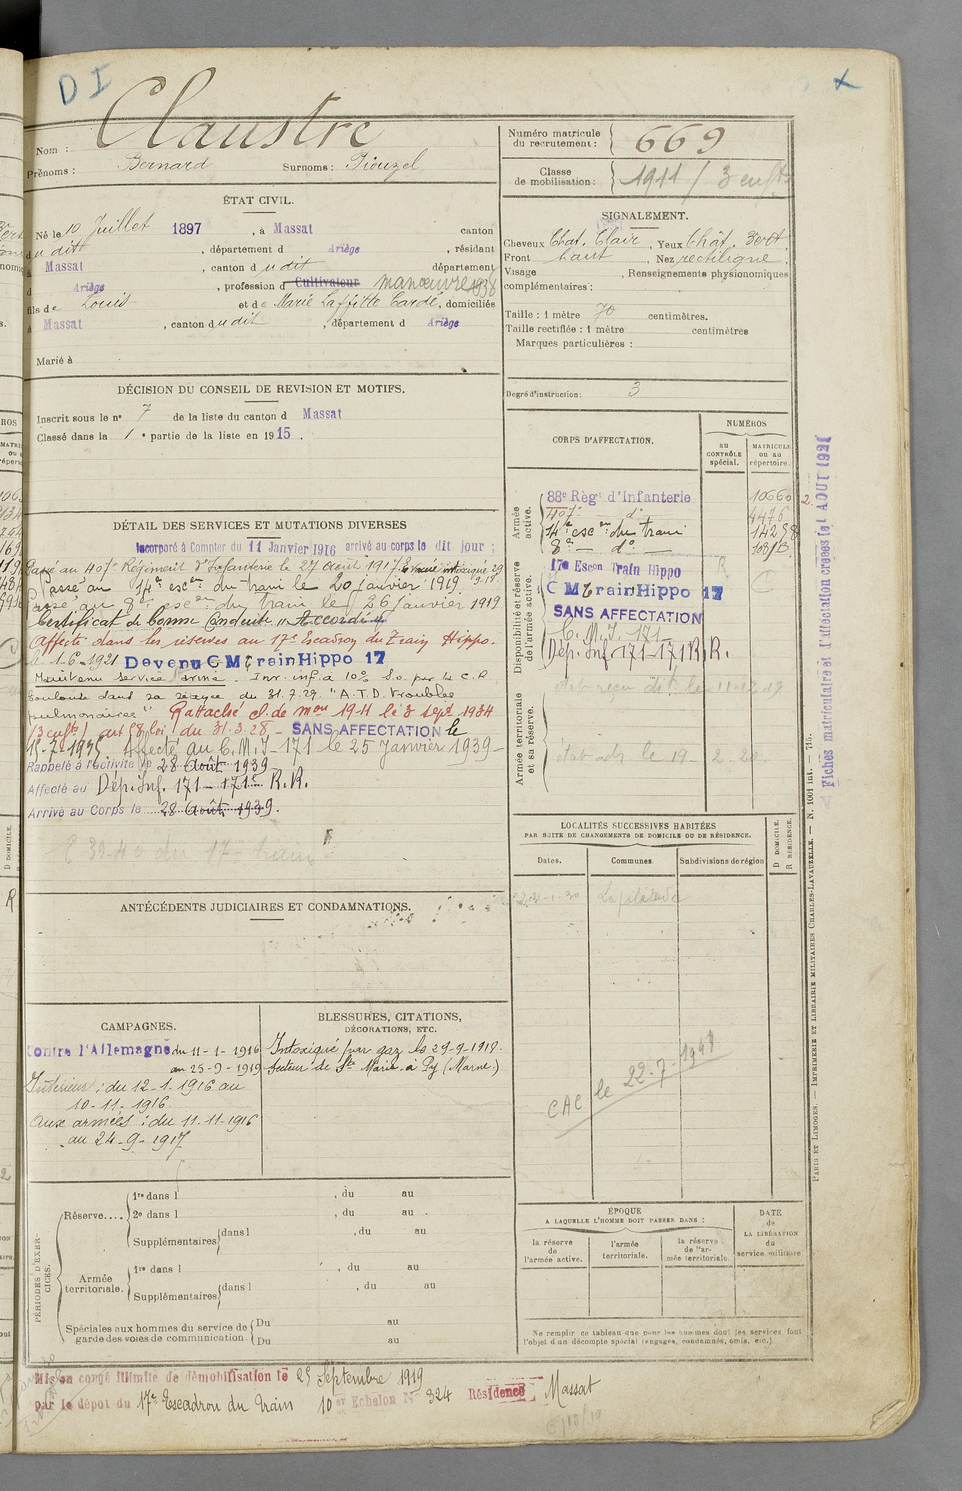 D I
Claustre
Nom :
Prénoms : Bernard Surnoms : Piouzel
Numéro matricule du recrutement : 669
Classe de mobilisation : 1911 / 3 enfts
ÉTAT CIVIL.
Né le 10 Juillet 1897, à Massat canton
du dit, département d Ariège, résidant
à Massat, canton du dit département
d Ariège, profession d Cultivateur manœuvre 1938
fils de Louis et de Marie Laffitte Cardé, domiciliés
à Massat, canton du dit, département d Ariège
Marié à
SIGNALEMENT.
Cheveux Chat. Clair, Yeux Chât. Vert
Front haut, Nez rectiligne.
Visage , Renseignements physionomiques
complémentaires :
Taille : 1 mètre 70 centimètres.
Taille rectifiée : 1 mètre centimètres
Marques particulières :
Degré d'instruction : 3
DÉCISION DU CONSEIL DE REVISION ET MOTIFS.
Inscrit sous le n° 7 de la liste du canton d Massat
Classé dans la 1 e partie de la liste en 1915.
CORPS D'AFFECTATION.
NUMÉROS
au CONTRÔLE spécial.
MATRICULE ou au répertoire.
Armée active.
88e Régt d'Infanterie 10660
407e do 4476
14e escon du train 14288
8e — do —
Disponibilité et réserve de l'armée active.
17e Escon Train Hippo
C M Train Hippo 17
SANS AFFECTATION
C. M. I. 171
Dép. Inf. 171 - 171 R.R.
Armée territoriale et sa réserve.
DÉTAIL DES SERVICES ET MUTATIONS DIVERSES
Incorporé à Compter du 11 Janvier 1916 arrivé au corps le dit jour ;
Passé au 407e Régiment d'Infanterie le 27 avril 1917
Passé au 14e escon du train le 20 janvier 1919.
Passé au 8e escon du train le 26 Janvier 1919
Certificat de bonne Conduite "Accordé"
Affecté dans les réserves au 17e Escadron du Train Hippo.
le 1-6-1921 Devenu C M Train Hippo 17
Maintenu service armé. Inv. inf. à 10% S.O. par la C.R.
Toulouse dans sa séance du 31.7.29. "A.T.D. troubles
pulmonaires" Rattaché cl. de mon 1911 le 3 sept 1934
(3 enfts) art 58 loi du 31.3.28 - SANS AFFECTATION le
15-7-1935 Affecté au C.M.I - 171 le 25 Janvier 1939 -
Rappelé à l'activité le 28 Août 1939
Affecté au Dép. Inf. 171 - 171e R.R.
Arrivé au Corps le 28 Août 1939.
LOCALITÉS SUCCESSIVES HABITÉES
PAR SUITE DE CHANGEMENTS DE DOMICILE OU DE RÉSIDENCE.
Dates.
Communes.
Subdivisions de région
D DOMICILE.
R RÉSIDENCE.
CAC le 22-7-1948
ANTÉCÉDENTS JUDICIAIRES ET CONDAMNATIONS.
CAMPAGNES.
Contre l'Allemagne du 11-1-1916
au 25-9-1919
Intérieur : du 12-1-1916 au
10-11-1916.
Aux armées : du 11-11-1916
au 24-9-1917
BLESSURES, CITATIONS,
DÉCORATIONS, ETC.
Intoxiqué par gaz le 29-9-1918.
Secteur de Ste Marie à Py (Marne.)
PÉRIODES D'EXERCICES.
Réserve....
1re dans l , du au
2e dans l , du au
Supplémentaires dans l , du au
Armée territoriale.
1re dans l , du au
Supplémentaires dans l , du au
Spéciales aux hommes du service de
garde des voies de communication.
Du au
Du au
ÉPOQUE
A LAQUELLE L'HOMME DOIT PASSER DANS :
la réserve de l'armée active.
l'armée territoriale.
la réserve de l'armée territoriale.
DATE de LA LIBÉRATION du service militaire
Ne remplir ce tableau que pour les hommes dont les services font
l'objet d'un décompte spécial (engagés, condamnés, omis, etc.).
Mis en congé illimité de démobilisation le 25 Septembre 1919
par le dépôt du 17e Escadron du Train 10e Echelon N° 324 Résidence Massat
Fiches matriculaire et d'affectation créées le 1 AOUT 1921
PARIS ET LIMOGES. — IMPRIMERIE ET LIBRAIRIE MILITAIRES CHARLES-LAVAUZELLE. — N. 1001 int. — 715.